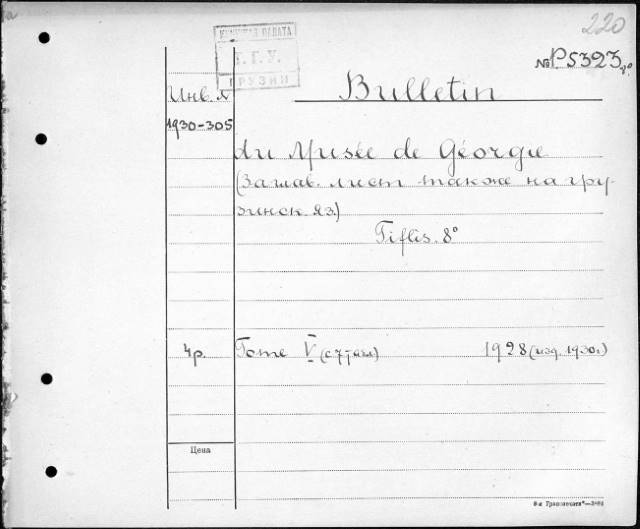 220
КНИЖНАЯ ПАЛАТА
Г.Г.У.
ГРУЗИИ
№ P5323
Инв. №
Bulletin
1930-305
du Musée de Géorgie
(Заглав. лист также на гру-
зинск. яз.)
Tiflis. 8°
4р. Tome V (с 7 табл) 1928 (изд. 1930г.)
Цена